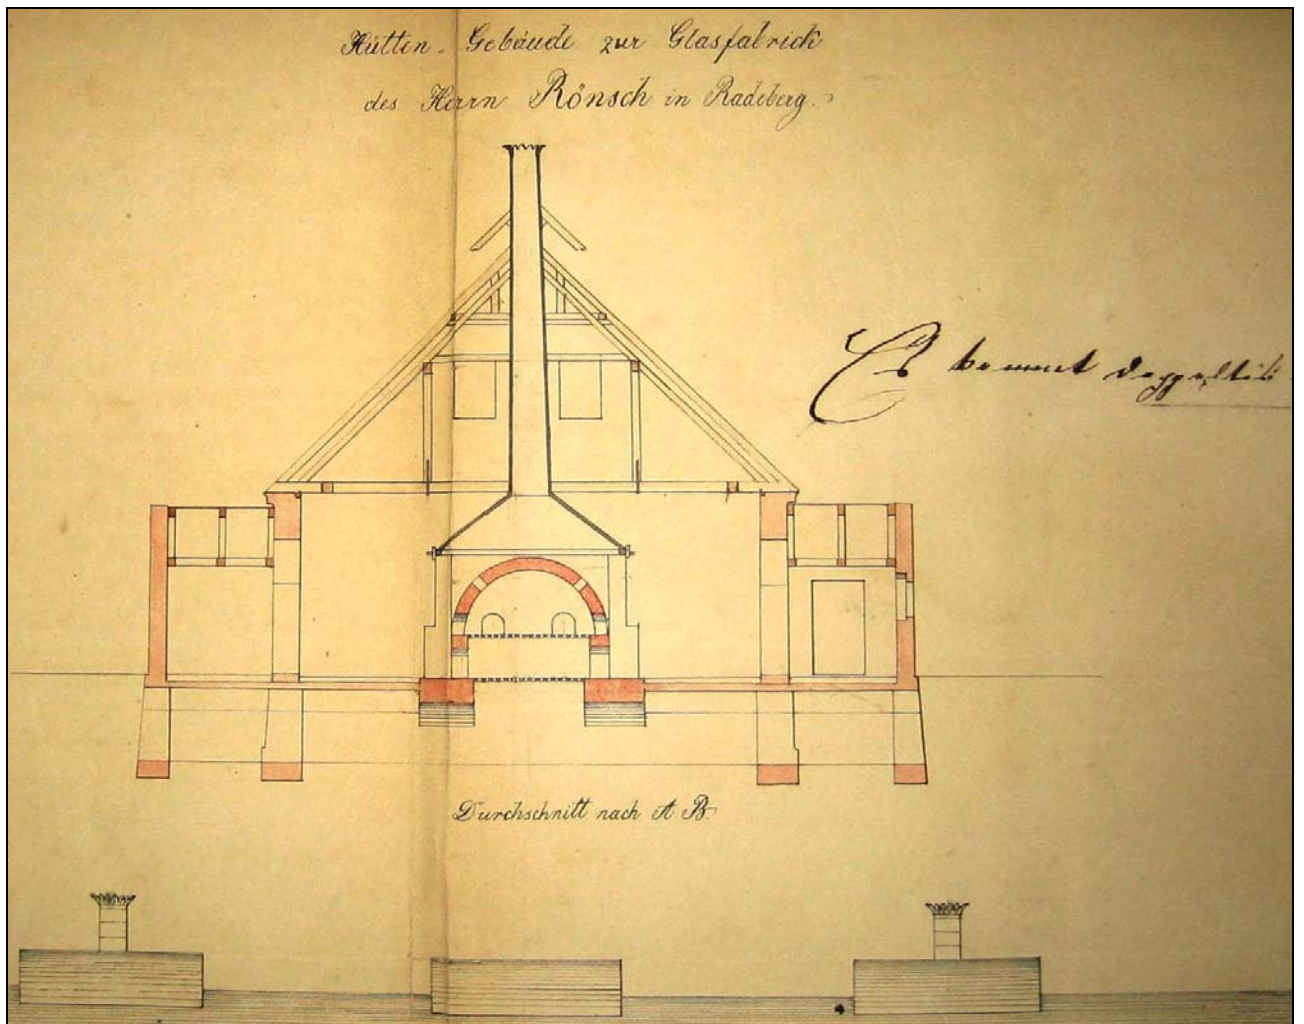 Hütten-Gebäude zur Glasfabrick
des Herrn Rönsch in Radeberg.
Durchschnitt nach A B.